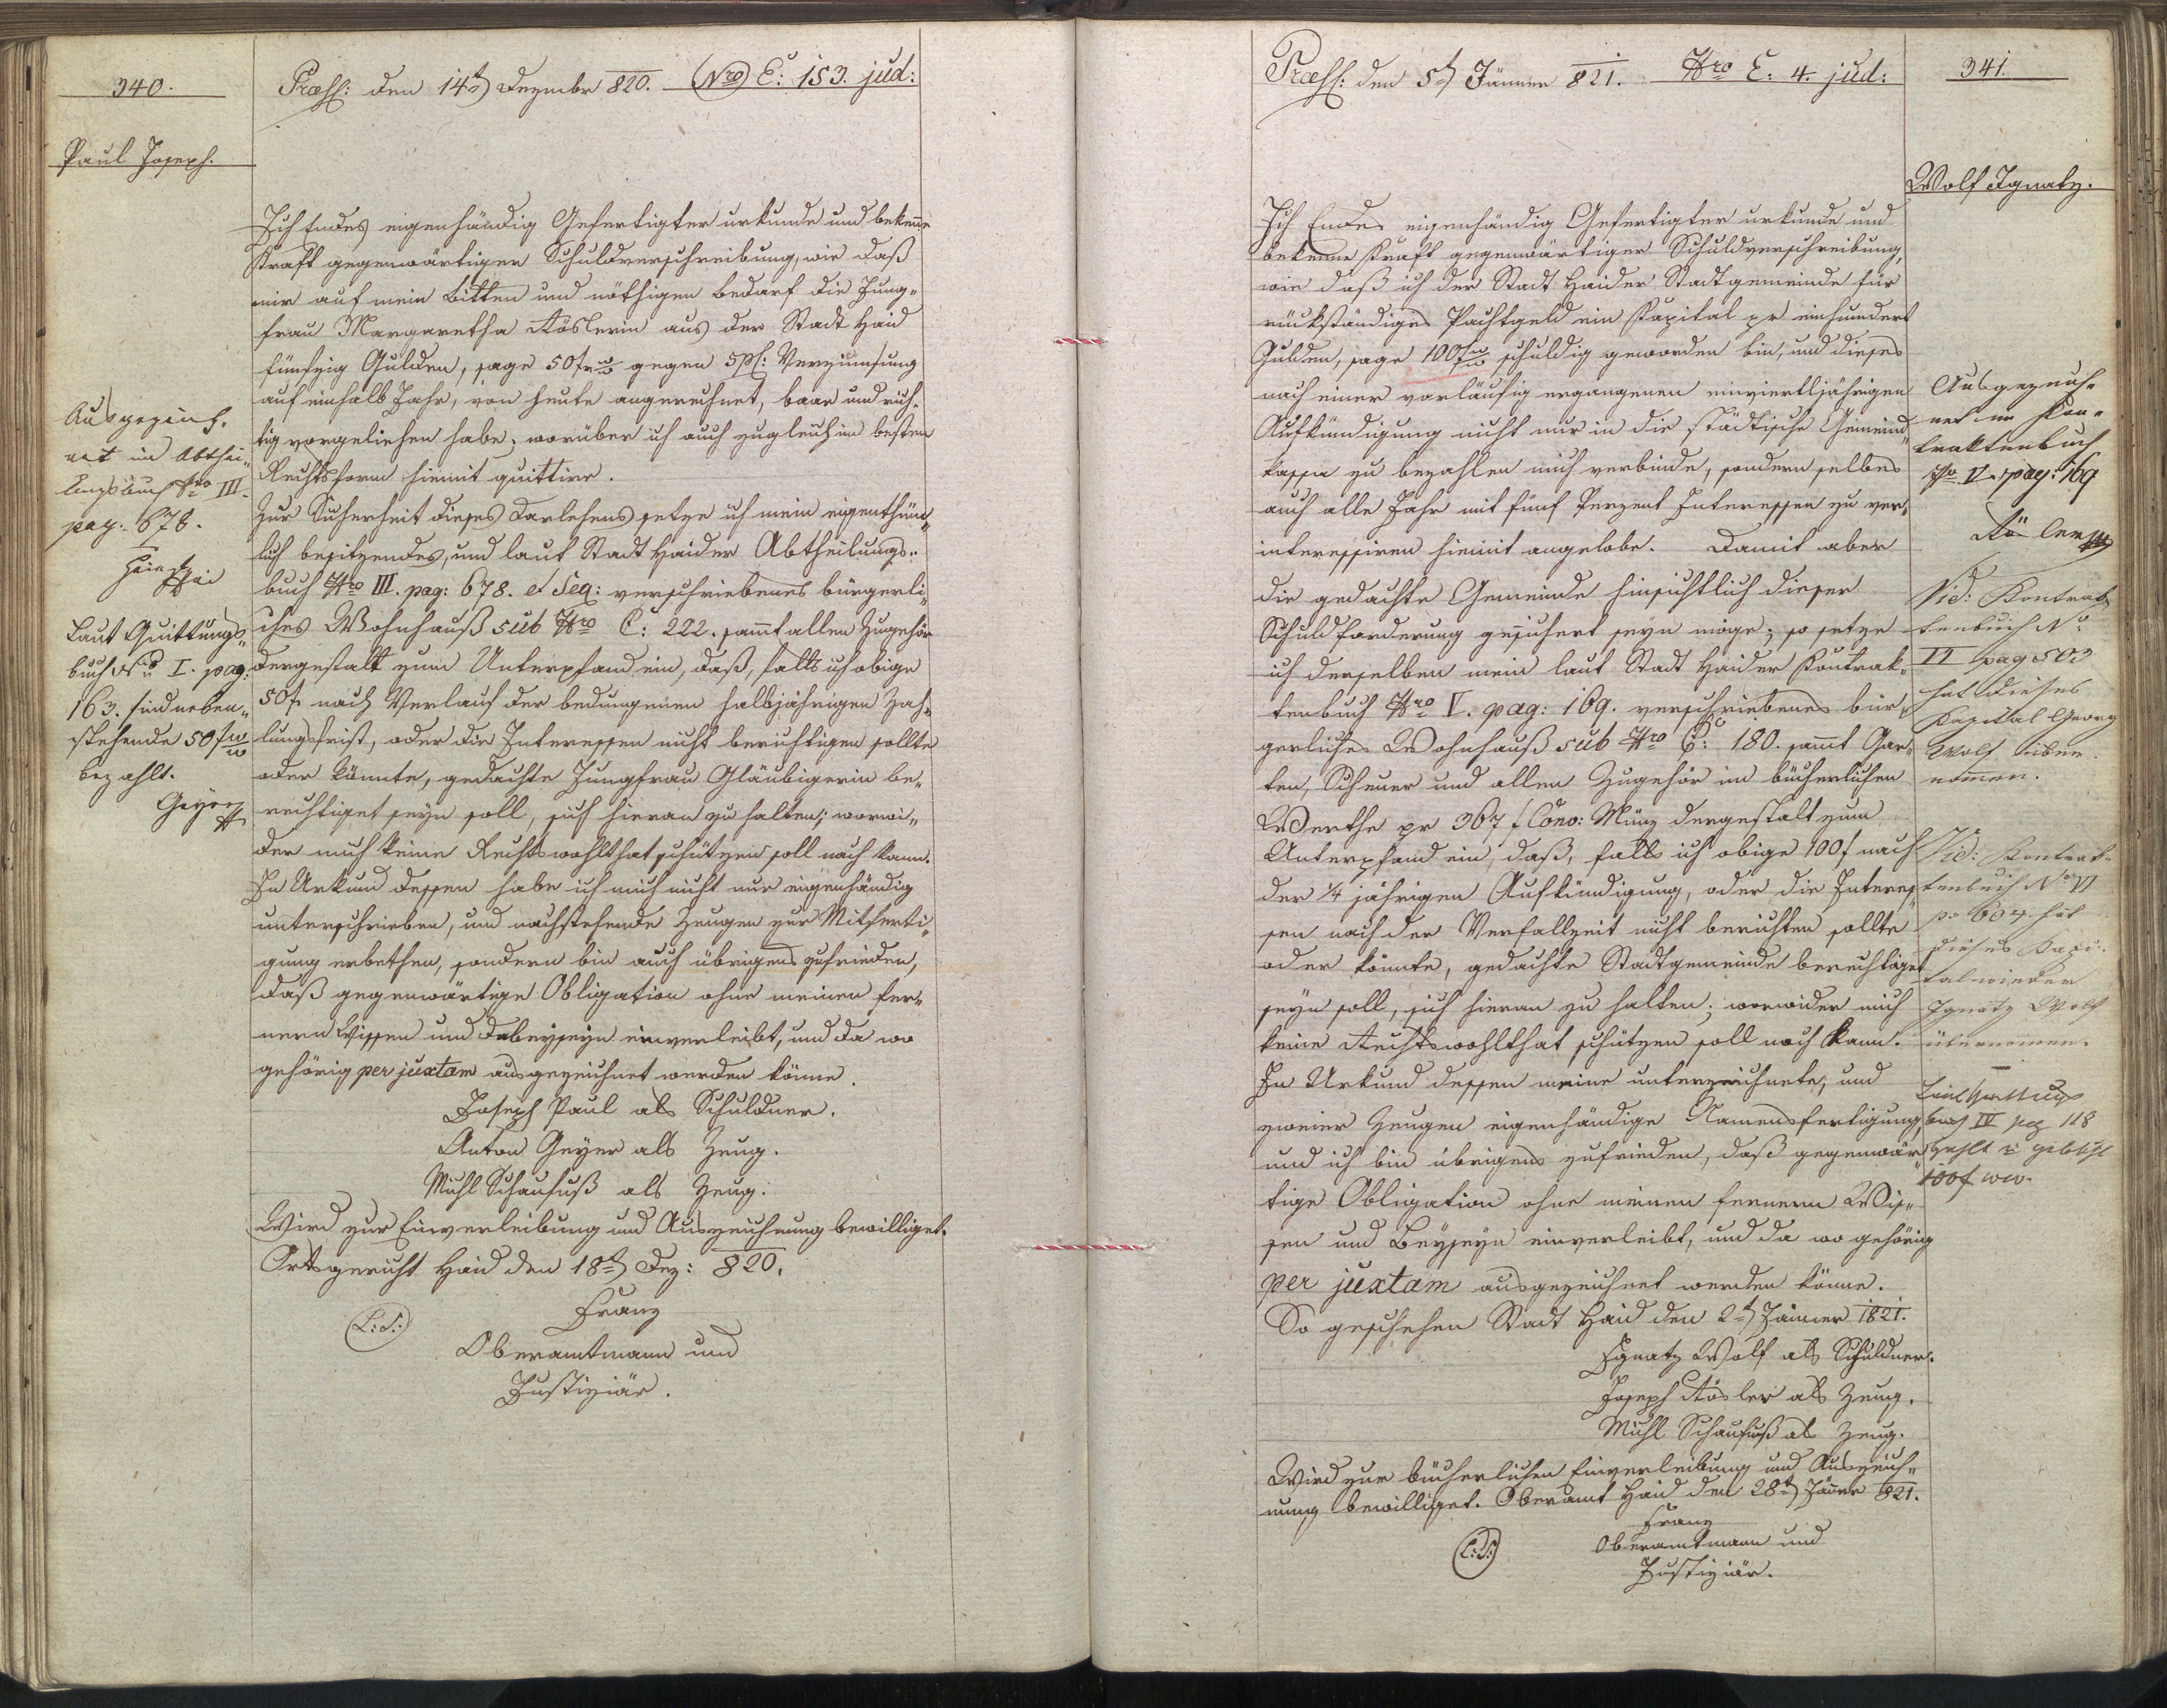 340.
Præss: den 14t Dezembr 820. Nro E: 153. jud:
Paul Joseph.
Ich Endes eigenhändig Gefertigter urkunde und bekenne
Kraft gegenwärtiger Schuldverschreibung, wie daß
mir auf mein Bitten und nöthigen Bedarf die Jung-
frau Margaretha Röslerin aus der Stadt Haid
fünfzig Gulden, sage 50f ww gegen 5 pC: Verzinnsung
auf einhalb Jahr, von heute angerechnet, baar und rich-
tig vorgeliehen habe; worüber ich auch zugleich im besten
Rechtsform hiemit quittire.
Zur Sicherheit dieses Darlehens setze ich mein eigenthüm-
lich besitzendes, und laut Stadt Haider Abtheilungs-
buch Nro III. pag: 678. et Seq: verschriebenes bürgerli-
ches Wohnhauß sub Nro C: 222. sammt allen Zugehör
dergestalt zum Unterpfand ein, daß, falls ich obige
50f nach Verlauf der bedungenen halbjährigen Zah-
lungsfrist, oder die Interessen nicht berichtigen sollte
oder könnte, gedachte Jungfrau Gläubigerin be-
rechtiget seyn soll, sich hieran zu halten; worwi-
der mich keine Rechtswohlthat schützen soll noch kann.
In Urkund dessen habe ich mich nicht nur eigenhändig
unterschrieben, und nachstehende Zeugen zur Mitferti-
gung erbethen, sondern bin auch übrigens zufrieden,
daß gegenwärtige Obligation ohne meinen fer-
nern Wissen und Dabeyseyn einverleibt, und da wo
gehörig per juxtam ausgezeichnet werden könne.
Joseph Paul als Schuldner.
Anton Geyer als Zeug.
Michl Schaufuß als Zeug.
Wird zur Einverleibung und Auszeichnung bewilliget.
Ortsgericht Haid den 18t Dez: 820.
Franz
(L:S:)
Oberamtmann und
Justiziär.
Ausgezeich-
net im Abthei-
lungsbuch Nro III.
pag: 678.
Laut Quittungs-
buch Nro I. pag:
163. sind neben-
stehende 50f ww
bezahlt.
Geyer
341.
Præss: den 5t Jänner 821. Nro E: 4. jud:
Wolf Ignatz.
Ich Endes eigenhändig Gefertigter urkunde und
bekenne Kraft gegenwärtiger Schuldverschreibung,
wie daß ich der Stadt Haider Stadtgemeinde für
rückständiges Pachtgeld ein Kapital pr einhundert
Gulden, sage 100f ww schuldig geworden bin, und dieses
nach einer vorläufig ergangenen einvierteljährigen
Aufkündigung nicht nur in die städtische Gemeind-
kassen zu bezahlen mich verbinde, sondern selbes
auch alle Jahr mit fünf Perzent Interessen zu ver-
interessiren hiemit angelobe. Damit aber
die gedachte Gemeinde hinsichtlich dieser
Schuldforderung gesichert seyn möge; so setze
ich derselben mein laut Stadt Haider Kontrak-
tenbuch Nro V. pag: 169. verschriebenes bür-
gerliches Wohnhauß sub Nro C: 180. sammt Gar-
ten, Scheuer und allen Zugehör im bücherlichen
Werthe pr 367 f Conv: Münz dergestalt zum
Unterpfand ein, daß, falls ich obige 100f nach
der 1/4 jährigen Aufkündigung, oder die Interes-
sen nach der Verfallzeit nicht berichten sollte
oder könnte, gedachte Stadtgemeinde berechtiget
seyn soll, sich hieran zu halten; worwider mich
keine Rechtswohlthat schützen soll noch kann.
In Urkund dessen meine unterzeichnete, und
zweier Zeugen eigenhändige Namensfertigung,
und ich bin übrigens zufrieden, daß gegenwär-
tige Obligation ohne meinen fernern Wis-
sen und Beyseyn einverleibt, und da wo gehörig
per juxtam ausgezeichnet werden könne.
So geschehen Stadt Haid den 2t Jänner 1821.
Ignatz Wolf als Schuldner.
Joseph Rösler als Zeug.
Michl Schaufuß als Zeug.
Wird zur bücherlichen Einverleibung und Auszeich-
nung bewilliget. Oberamt Haid den 28t Jänner 821.
Franz
(L:S:)
Oberamtmann und
Justiziär.
Ausgezeich-
net im Kon-
traktenbuch
Nro V. pag: 169
Rösler
Vid: Kontrak-
tenbuch No
VI pag 503
hat dieses
Kapital Georg
Wolf über-
nommen.
Vid: Kontrak-
tenbuch No VI
p: 604 hat
dieses Kapi-
tal wieder
Ignatz Wolf
übernommen.
Laut Quittungs
buch IV pag 118
100f ww.